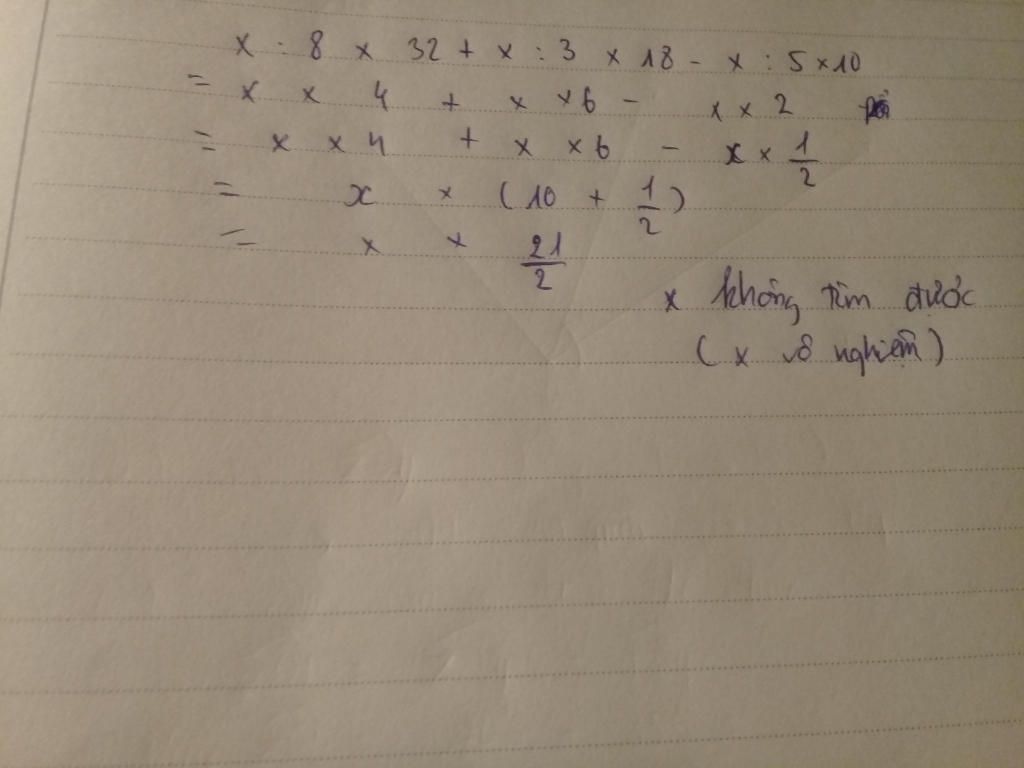 x : 8 x 32 + x : 3 x 18 - x : 5 x 10
= x x 4 + x x 6 - x x 2
= x x 4 + x x 6 - x x 1/2
= x x (10 + 1/2)
= x x 21/2
x không tìm được
(x vô nghiệm)